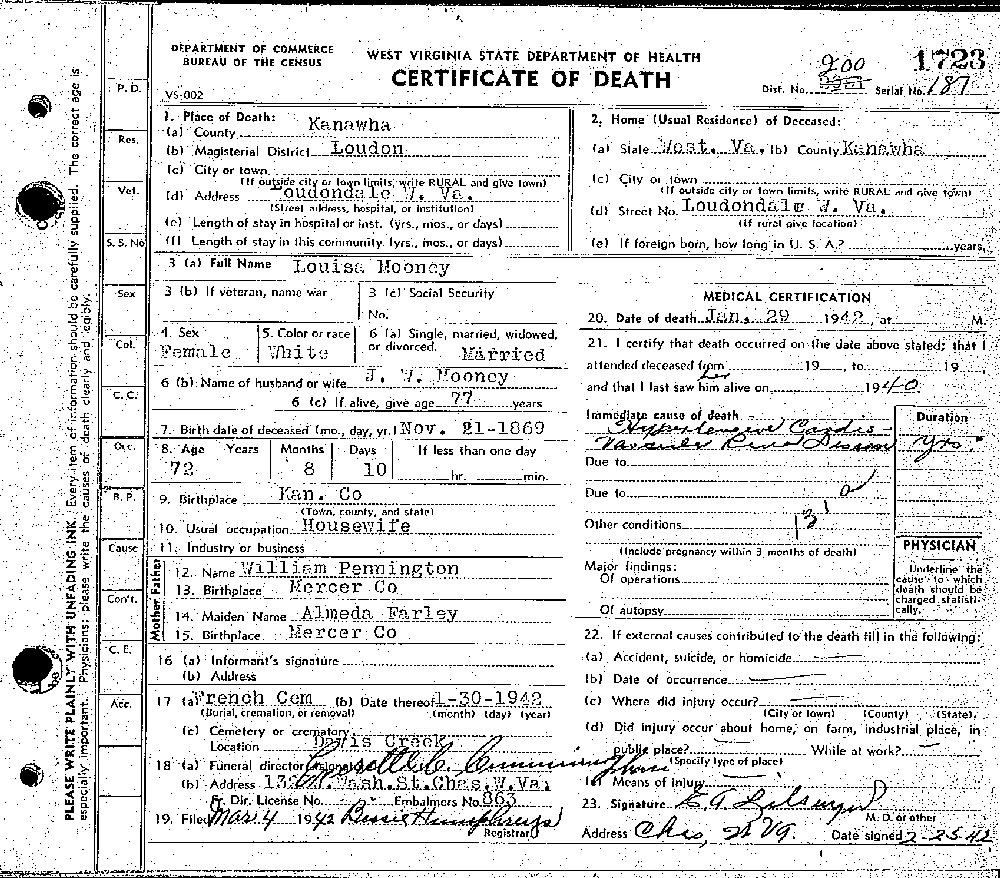 DEPARTMENT OF COMMERCE
BUREAU OF THE CENSUS
VS-002
WEST VIRGINIA STATE DEPARTMENT OF HEALTH
CERTIFICATE OF DEATH
1723
Dist. No. 200 Serial No. 187
1. Place of Death:
(a) County Kanawha
(b) Magisterial District Loudon
(c) City or town
(If outside city or town limits, write RURAL and give town)
(d) Address Loudondale W. Va.
(Street address, hospital, or institution)
(e) Length of stay in hospital or inst. (yrs., mos., or days)
(f) Length of stay in this community. (yrs., mos., or days)
2. Home (Usual Residence) of Deceased:
(a) State West. Va. (b) County Kanawha
(c) City or town
(If outside city or town limits, write RURAL and give town)
(d) Street No. Loudondale W. Va.
(If rural give location)
(e) If foreign born, how long in U. S. A.? years.
3 (a) Full Name Louisa Mooney
3 (b) If veteran, name war
3 (c) Social Security
No.
4. Sex Female
5. Color or race White
6 (a) Single, married, widowed,
or divorced. Married
6 (b) Name of husband or wife J. W. Mooney
6 (c) If alive, give age 77 years
7. Birth date of deceased (mo., day, yr.) Nov. 21-1869
8. Age Years Months Days If less than one day
72 8 10 hr. min.
9. Birthplace Kan. Co
(Town, county, and state)
10. Usual occupation Housewife
11. Industry or business
Father
12. Name William Pennington
13. Birthplace Mercer Co
Mother
14. Maiden Name Almeda Farley
15. Birthplace Mercer Co
16 (a) Informant's signature
(b) Address
17 (a) French Cem (b) Date thereof 1-30-1942
(Burial, cremation, or removal) (month) (day) (year)
(c) Cemetery or crematory
Location Davis Creek
18 (a) Funeral director
(b) Address Wash. St. Chas. W. Va.
Fr. Dir. License No. Embalmers No. 863
19. Filed Mar. 4 1942 Bessie Humphreys
Registrar
MEDICAL CERTIFICATION
20. Date of death Jan. 29 1942, at M.
21. I certify that death occurred on the date above stated; that I
attended deceased from 19 , to 19
and that I last saw him her alive on 1940
Immediate cause of death
Hypertensive Cardio-
Vascular Renal Disease
Duration
yrs.
Due to
Due to
Other conditions
(Include pregnancy within 3 months of death)
Major findings:
Of operations
Of autopsy
PHYSICIAN
Underline the
cause to which
death should be
charged statisti-
cally.
22. If external causes contributed to the death fill in the following:
(a) Accident, suicide, or homicide
(b) Date of occurrence
(c) Where did injury occur?
(City or town) (County) (State)
(d) Did injury occur about home, on farm, industrial place, in
public place? While at work?
(Specify type of place)
(e) Means of injury
23. Signature
M. D. or other
Address Chas, W Va. Date signed 2-25-42
P. D.
Res.
Vet.
S. S. No
Sex
Col.
C. C.
Occ.
B. P.
Cause
Con't.
C. E.
Acc.
PLEASE WRITE PLAINLY WITH UNFADING INK. Every item of information should be carefully supplied. The correct age is
especially important. Physicians: please write the causes of death clearly and legibly.